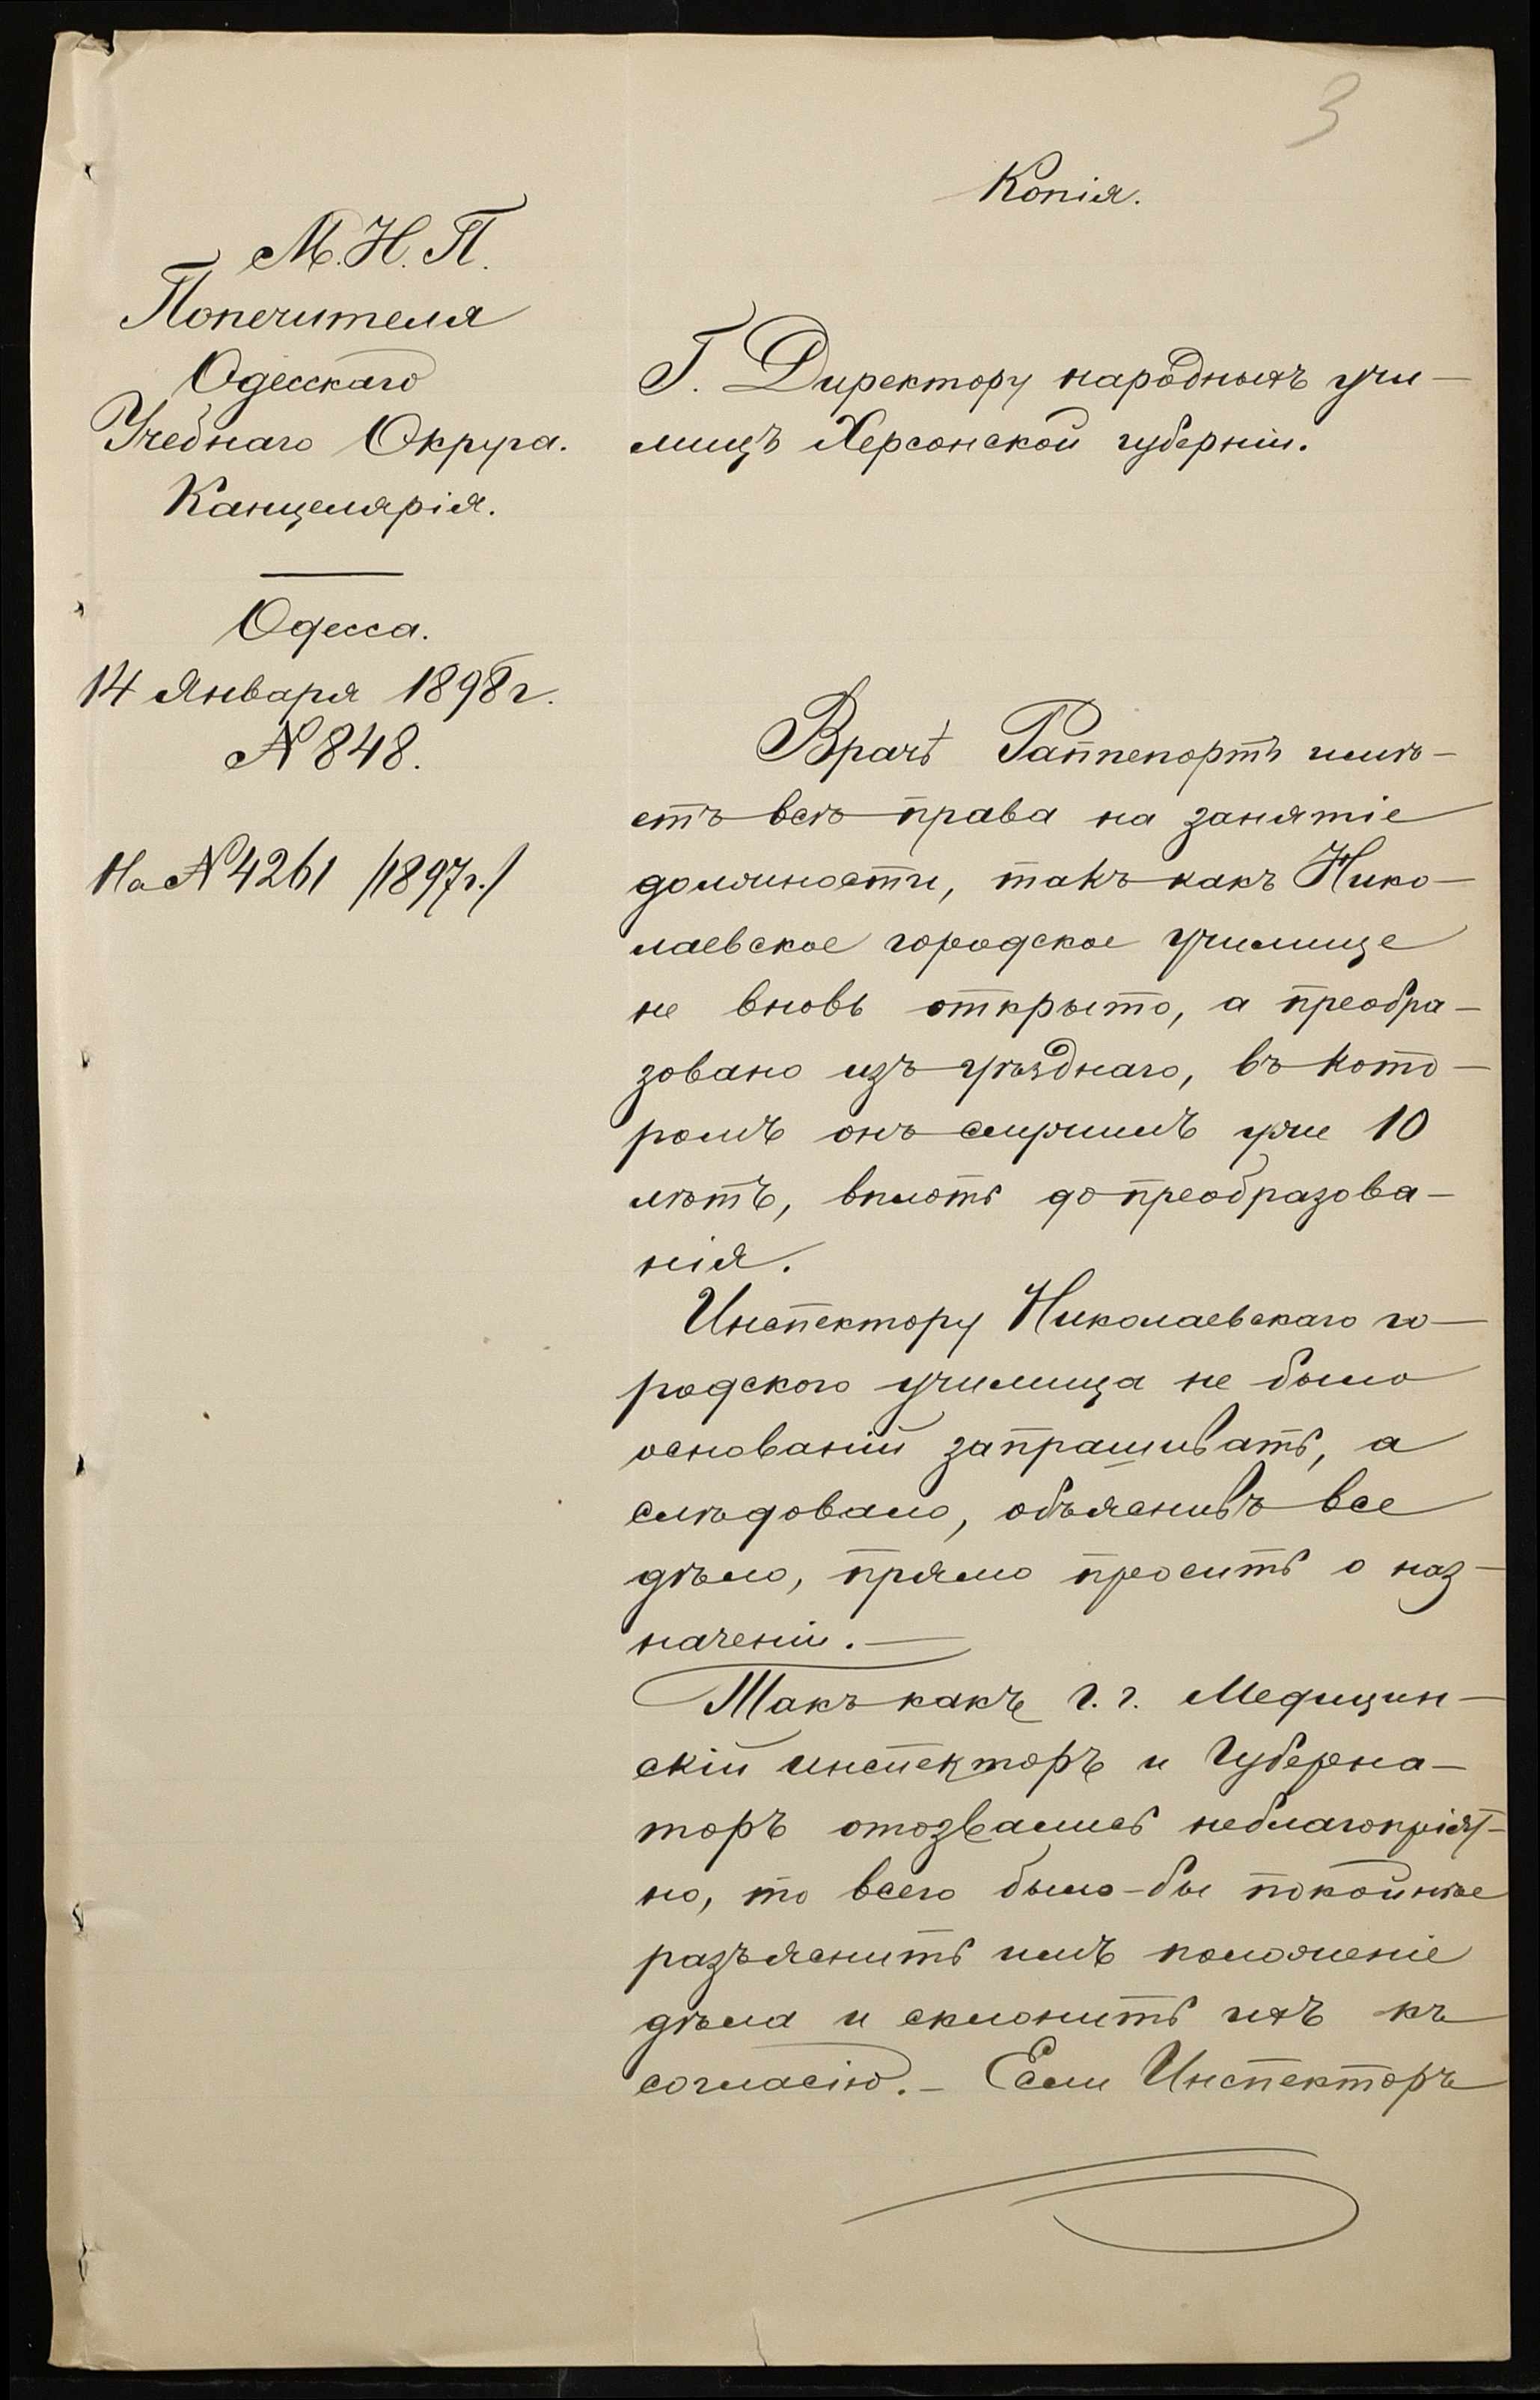 3
Копія.
М. Н. П.
Попечителя
Одесскаго
Учебнаго Округа.
Канцелярія.
Одесса.
14 Января 1898 г.
№ 848.
На № 4261 /1897 г./
Г. Директору народныхъ учи-
лищъ Херсонской губерніи.
Врачъ Раппепортъ имѣ-
етъ всѣ права на занятіе
должности, такъ какъ Нико-
лаевское городское училище
не вновь открыто, а преобра-
зовано изъ уѣзднаго, въ кото-
ромъ онъ служилъ уже 10
лѣтъ, вплоть до преобразова-
нія.
Инспектору Николаевскаго го-
родского училища не было
основаній запрашивать, а
слѣдовало, объяснивъ все
дѣло, прямо просить о наз-
наченіи.—
Такъ какъ г.г. Медицин-
скій инспекторъ и Губерна-
торъ отозвались неблагопріят-
но, то всего было-бы покойнѣе
разъяснить имъ положеніе
дѣла и склонить ихъ къ
согласію.- Если Инспекторъ